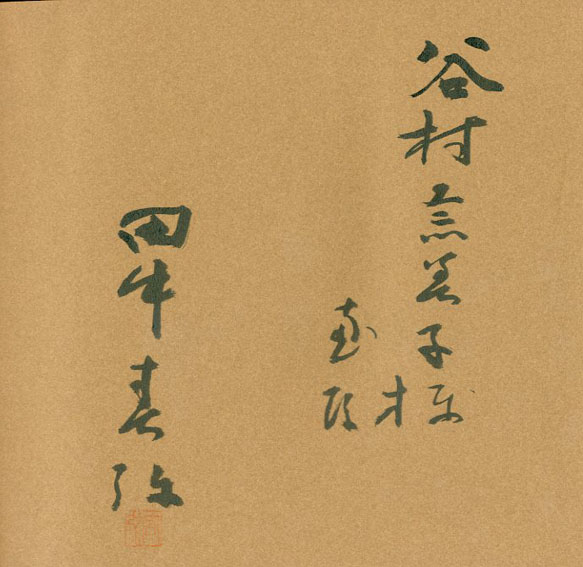 谷村 子様
恵存
田中春弥